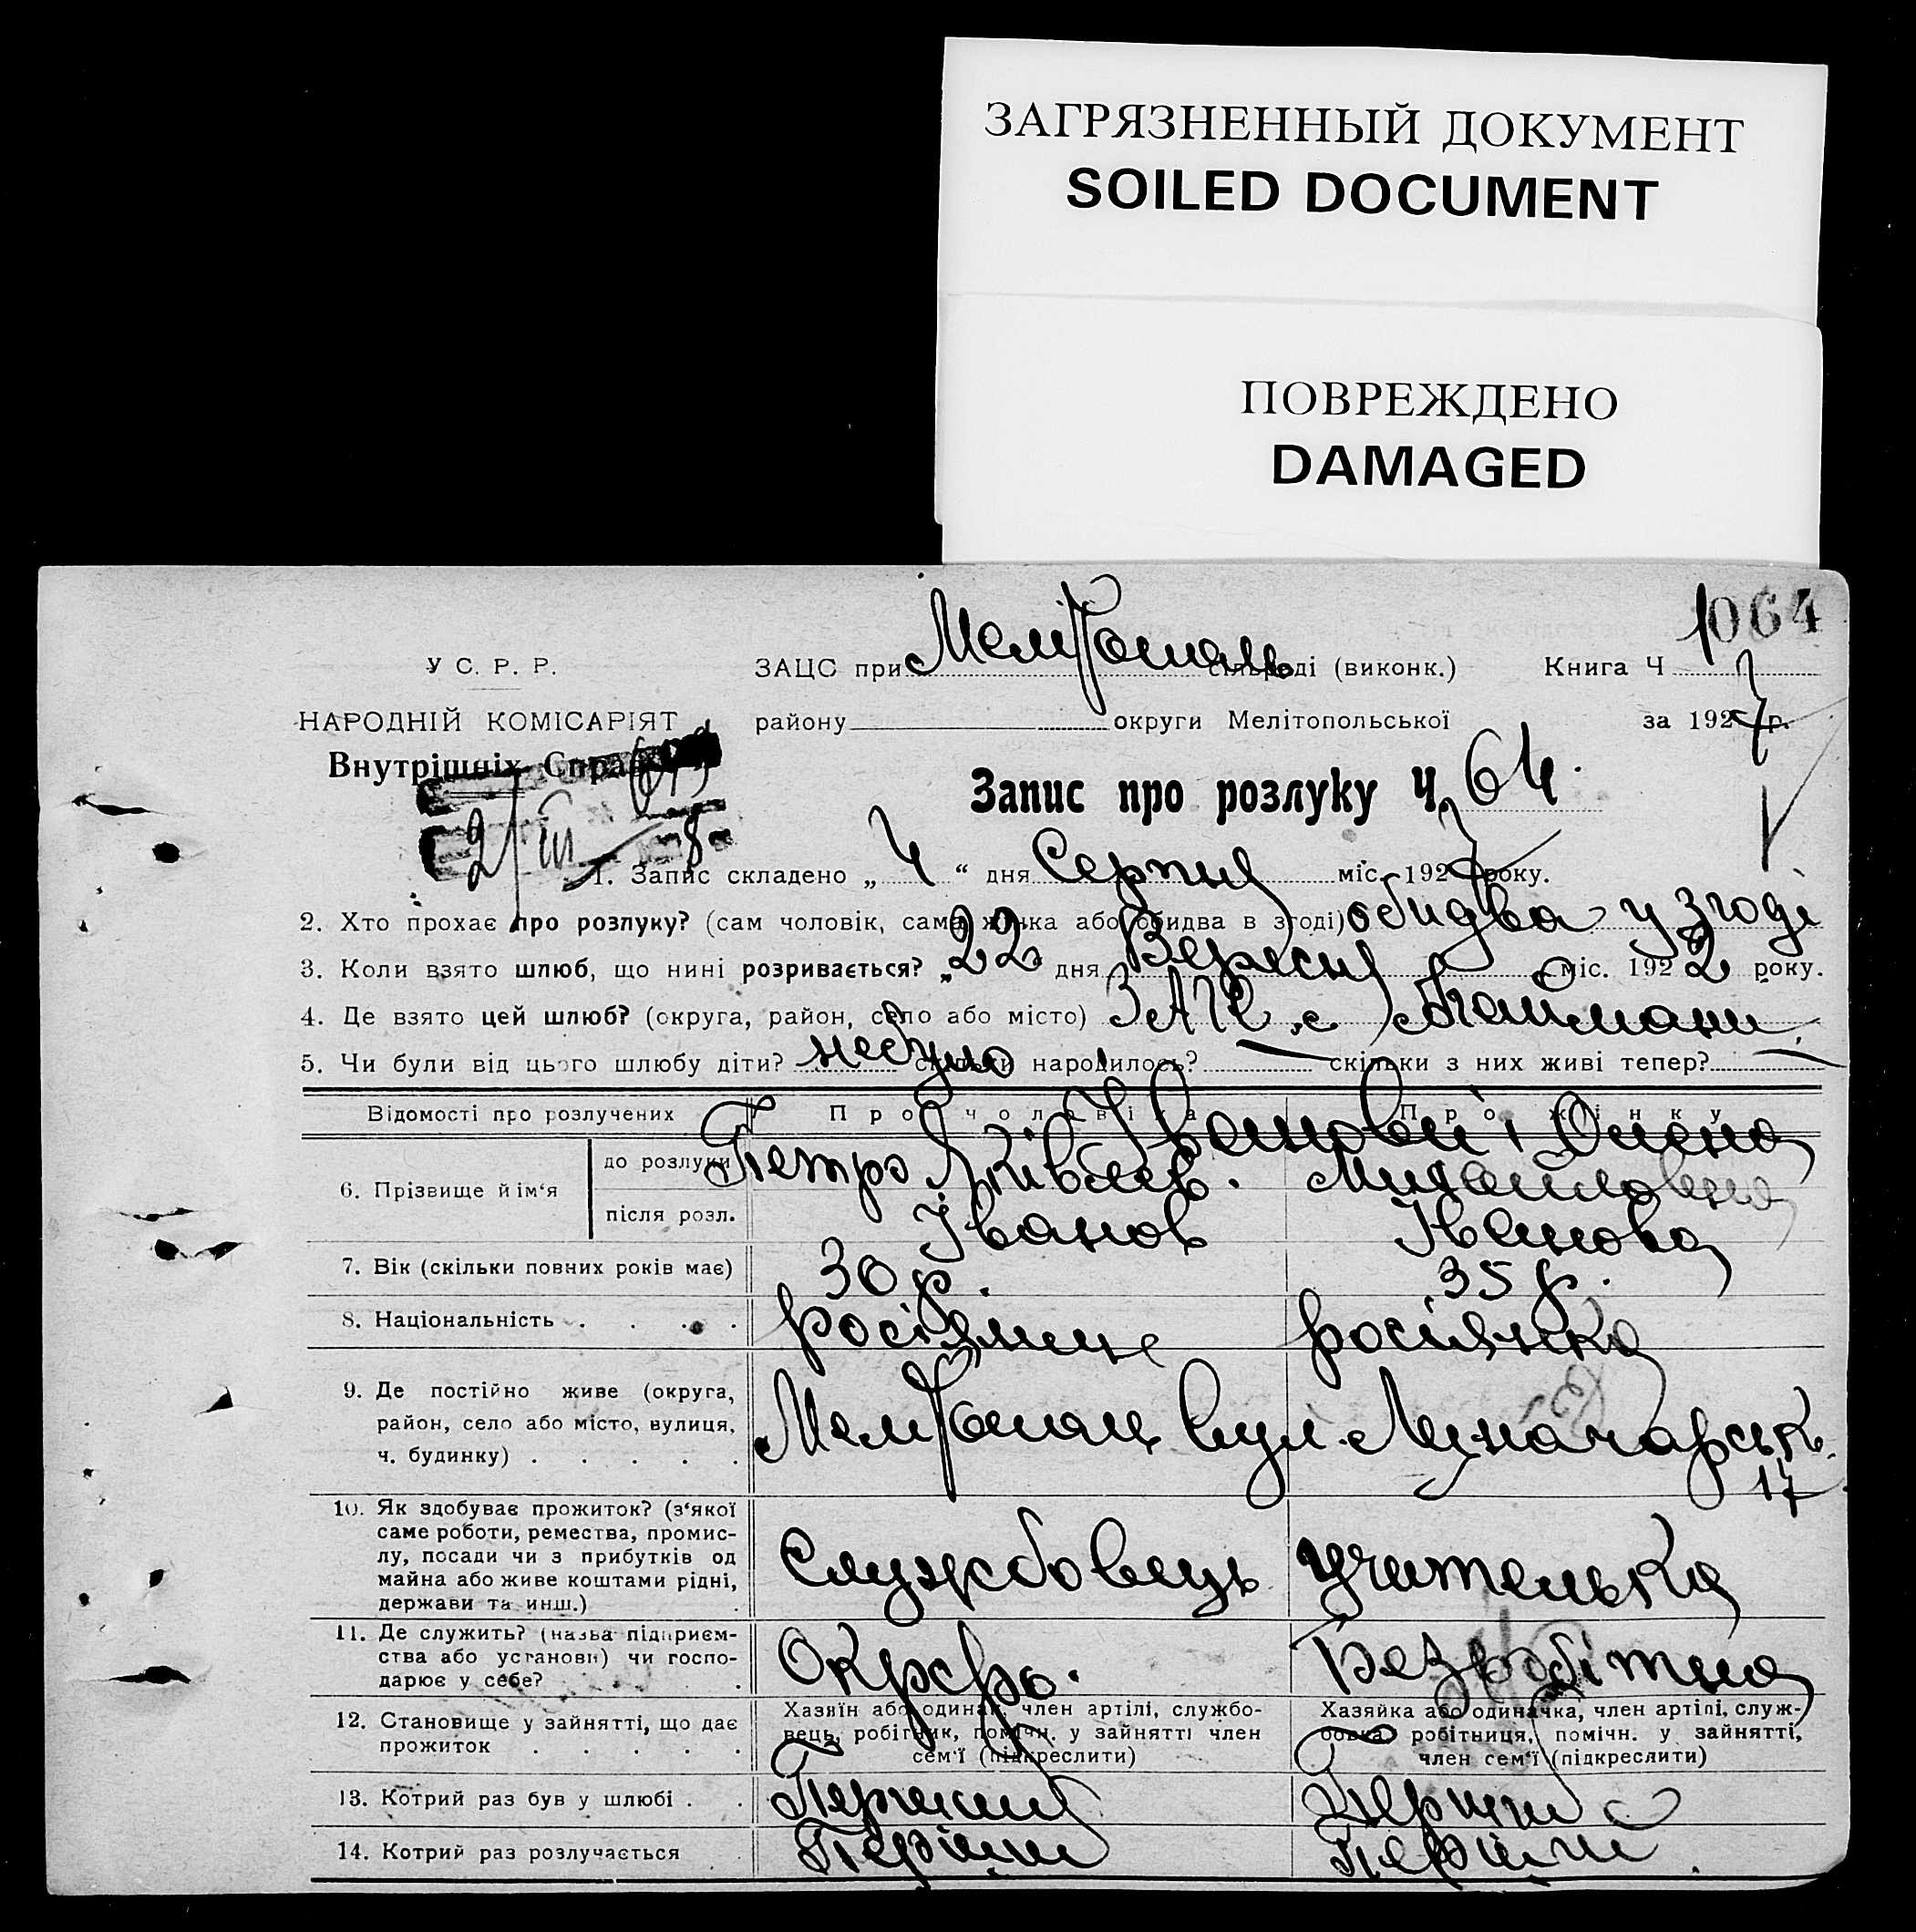 ЗАГРЯЗНЕННЫЙ ДОКУМЕНТ
SOILED DOCUMENT
ПОВРЕЖДЕНО
DAMAGED
1064
У С. Р. Р.
ЗАЦС при Мелітополь сільраді (виконк.) Книга Ч
НАРОДНІЙ КОМІСАРІЯТ
району округи Мелітопольської за 1927 р.
Внутрішніх Справ
Запис про розлуку Ч. 64
2/III 8
1. Запис складено „ 4 “ дня Серпня міс. 1927 року.
2. Хто прохає про розлуку? (сам чоловік, сама жінка або обидва в згоді) обидва у згоді
3. Коли взято шлюб, що нині розривається? „ 22 дня Вересня міс. 1922 року.
4. Де взято цей шлюб? (округа, район, село або місто) ЗАГС с.
5. Чи були від цього шлюбу діти? небуло скільки народилось? — скільки з них живі тепер? —
Відомості про розлучених Про чоловіка Про жінку
6. Прізвище й ім'я
до розлуки Іванови і Олена
Петро Яківлев. Михайловна
після розл. Іванов Іванова
7. Вік (скільки повних років має) 30 р. 35 р.
8. Національність . . . . росіянин росіянка
9. Де постійно живе (округа,
район, село або місто, вулиця,
ч. будинку) . . . . .
Мелітополь вул. Луначарськ.
17
10. Як здобуває прожиток? (з'якої
саме роботи, ремества, промис-
лу, посади чи з прибутків од
майна або живе коштами рідні,
держави та инш.)
Службовець учителька
11. Де служить? (назва підприєм-
ства або установи) чи госпо-
дарює у себе?
Безробітна
12. Становище у зайнятті, що дає
прожиток . . . . .
Хазяїн або одинак, член артілі, службо-
вець, робітник, помічн. у зайнятті член
сем'ї (підкреслити)
Хазяйка або одиначка, член артілі, служ-
бовка, робітниця, помічн. у зайнятті,
член сем'ї (підкреслити)
13. Котрий раз був у шлюбі . . Перший Перший
14. Котрий раз розлучається Перший Перший